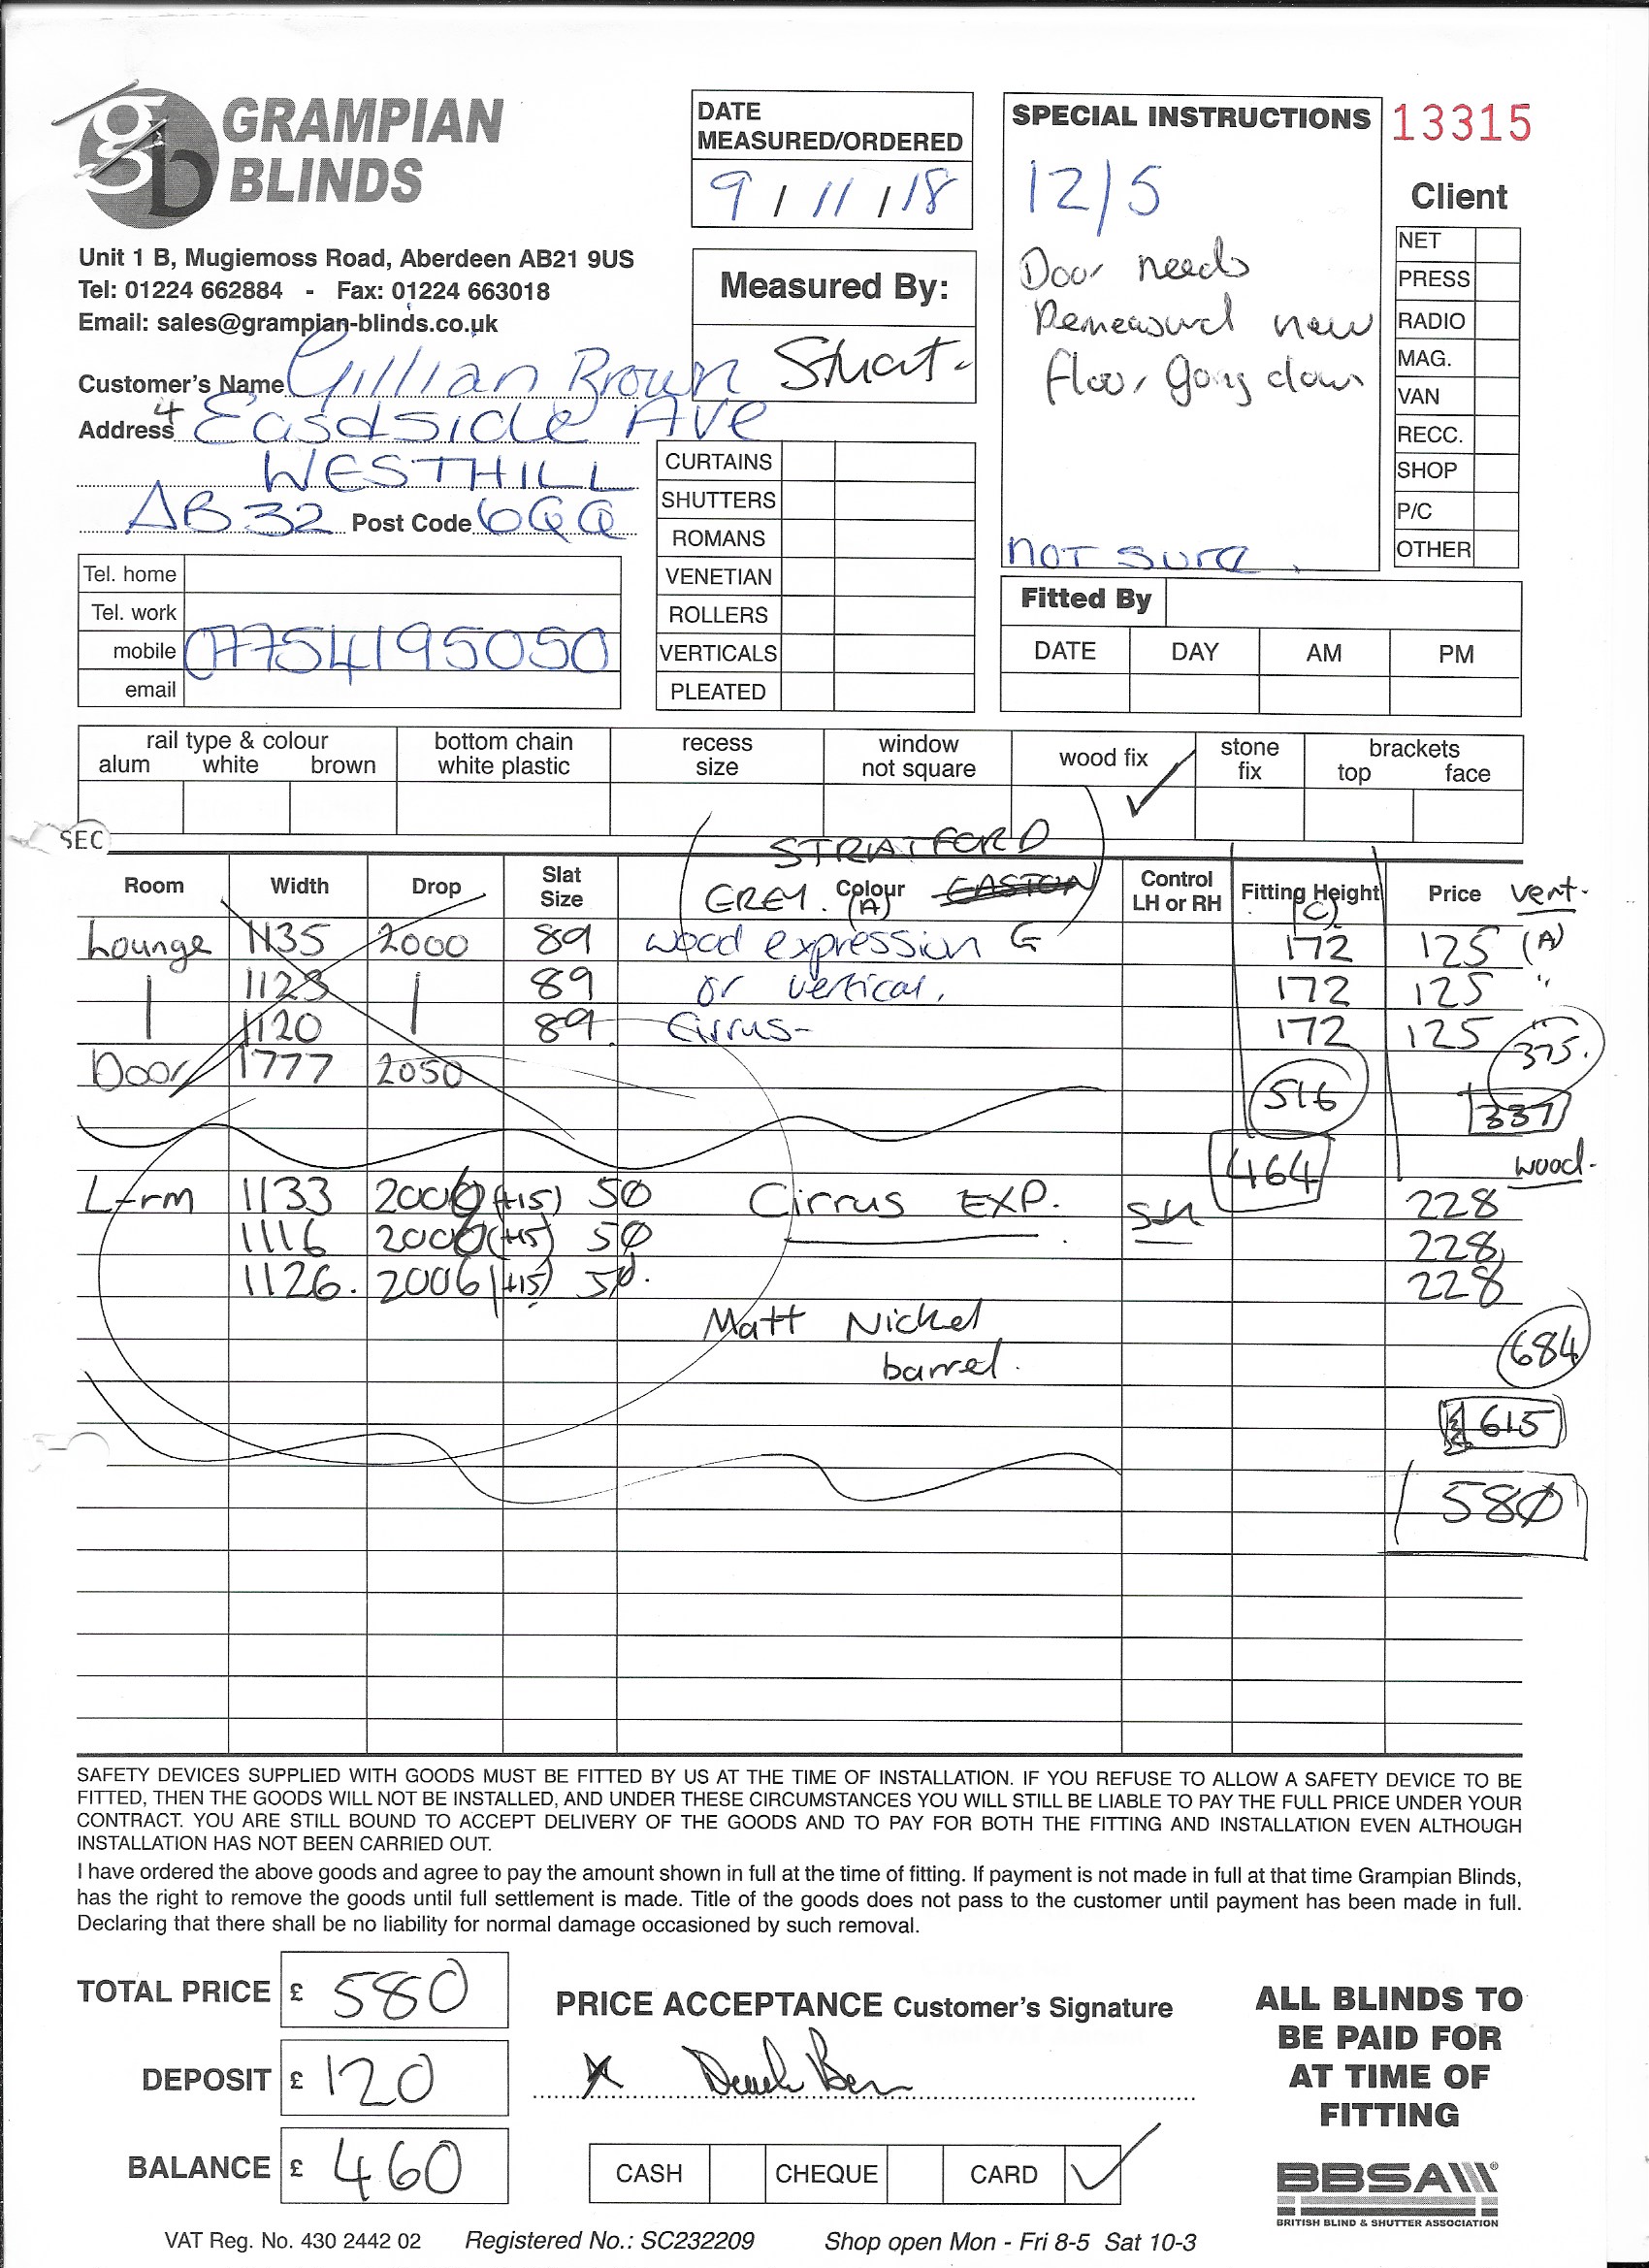 GRAMPIAN
BLINDS
Unit 1 B, Mugiemoss Road, Aberdeen AB21 9US
Tel: 01224 662884 - Fax: 01224 663018
Email: sales@grampian-blinds.co.uk
Customer's Name Gillian Brown
Address 4 Eastside Ave
WESTHILL
AB32 Post Code 6QQ
Tel. home
Tel. work
mobile 07754195050
email
DATE
MEASURED/ORDERED
9/11/18
Measured By:
Stuart
CURTAINS
SHUTTERS
ROMANS
VENETIAN
ROLLERS
VERTICALS
PLEATED
SPECIAL INSTRUCTIONS
12/5
Door needs
Remeasurd new
Floor going down
NOT SURE.
13315
Client
NET
PRESS
RADIO
MAG.
VAN
RECC.
SHOP
P/C
OTHER
Fitted By
DATE DAY AM PM
rail type & colour
alum white brown
bottom chain
white plastic
recess
size
window
not square
wood fix ✓
stone
fix
brackets
top face
SEC
STRATFORD
Room Width Drop Slat Size GREY. Colour (A) EASTON Control LH or RH Fitting Height (C) Price vert.
Lounge 1135 2000 89 wood expression G 172 125 (A)
1128 89 or vertical. 172 125 "
1120 89 Cirrus- 172 125 "
375.
Door 1777 2050
516
337
464
wood.
L-rm 1133 2006 (+15) 50 Cirrus EXP. SM 228
1116 2006 (+15) 50 228
1126. 2006 (+15) 50. 228
Matt Nickel
barrel.
684
615
580
SAFETY DEVICES SUPPLIED WITH GOODS MUST BE FITTED BY US AT THE TIME OF INSTALLATION. IF YOU REFUSE TO ALLOW A SAFETY DEVICE TO BE
FITTED, THEN THE GOODS WILL NOT BE INSTALLED, AND UNDER THESE CIRCUMSTANCES YOU WILL STILL BE LIABLE TO PAY THE FULL PRICE UNDER YOUR
CONTRACT. YOU ARE STILL BOUND TO ACCEPT DELIVERY OF THE GOODS AND TO PAY FOR BOTH THE FITTING AND INSTALLATION EVEN ALTHOUGH
INSTALLATION HAS NOT BEEN CARRIED OUT.
I have ordered the above goods and agree to pay the amount shown in full at the time of fitting. If payment is not made in full at that time Grampian Blinds,
has the right to remove the goods until full settlement is made. Title of the goods does not pass to the customer until payment has been made in full.
Declaring that there shall be no liability for normal damage occasioned by such removal.
TOTAL PRICE £ 580
DEPOSIT £ 120
BALANCE £ 460
PRICE ACCEPTANCE Customer's Signature
X
CASH CHEQUE CARD ✓
ALL BLINDS TO
BE PAID FOR
AT TIME OF
FITTING
BBSA
BRITISH BLIND & SHUTTER ASSOCIATION
VAT Reg. No. 430 2442 02 Registered No.: SC232209 Shop open Mon - Fri 8-5 Sat 10-3